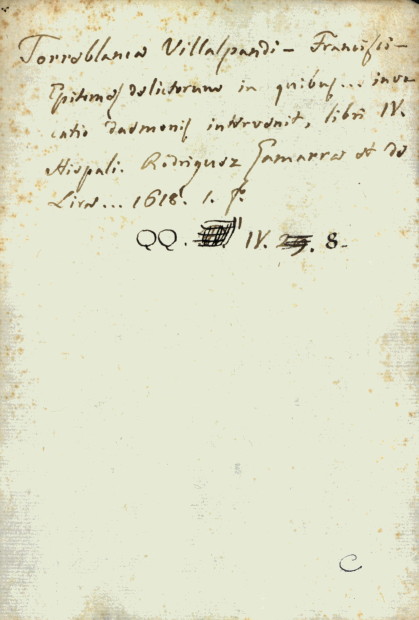 Torreblanca Villalpandi - Francisci -
Epitomes delictorum in quibus... invo
catio daemonis intervenit, libri IV.
Hispali. Rodriguez Gamarra et de
Lira... 1618. 1. f.
QQ. IV. 29. 8.
C